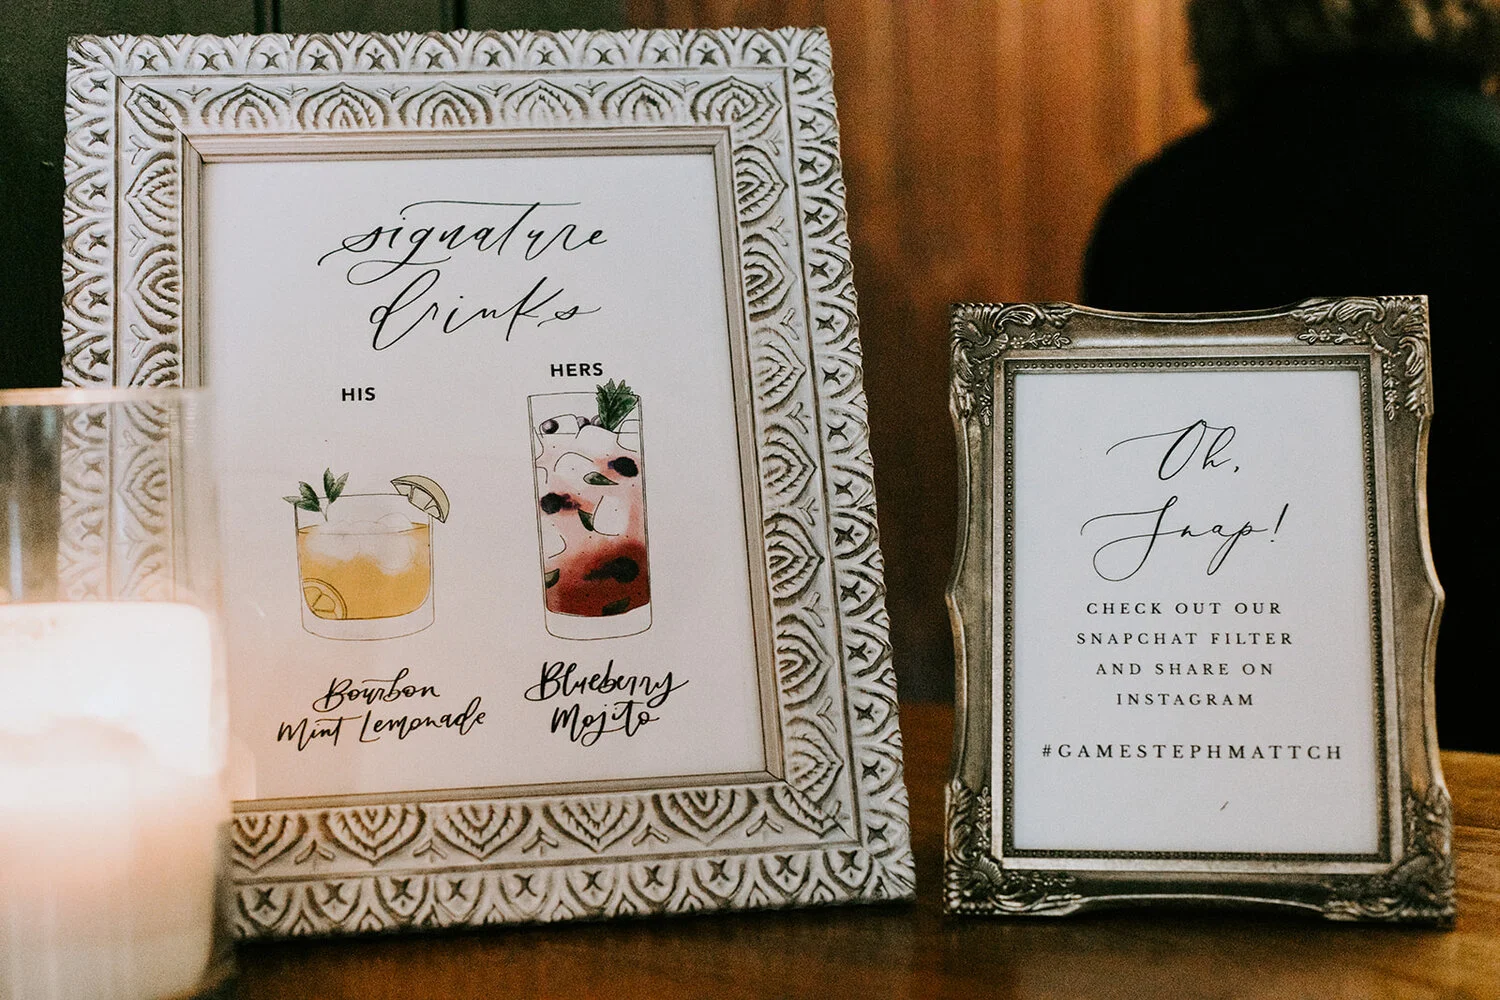 signature
drinks
HIS
HERS
Bourbon
Mint Lemonade
Blueberry
Mojito
Oh,
Snap!
CHECK OUT OUR
SNAPCHAT FILTER
AND SHARE ON
INSTAGRAM
#GAMESTEPHMATTCH